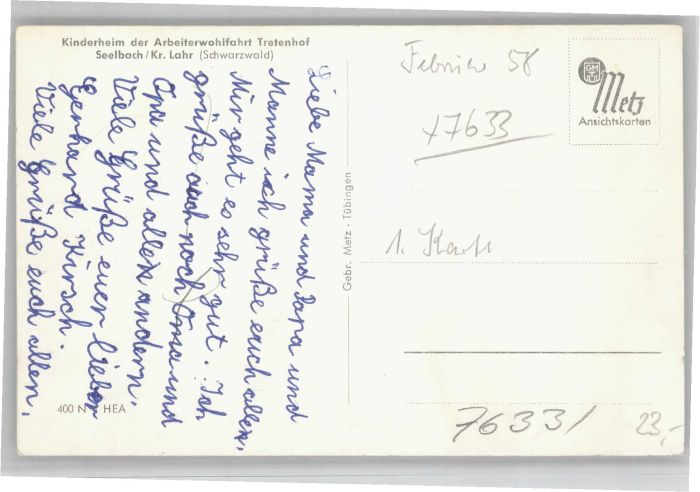 Kinderheim der Arbeiterwohlfahrt Tretenhof
Seelbach/Kr. Lahr (Schwarzwald)
Liebe Mama und Papa und
Manne ich grüße euch allen.
Mir geht es sehr gut. Ich
grüße auch noch Oma und
Opa und allen andern.
Viele Grüße euer lieber
Gerhard Kirsch.
Viele Grüße euch allen.
400 N HEA
Gebr. Metz · Tübingen
Februar 58
47633
1. Karte
GMT
Metz
Ansichtskarten
76331
23,-